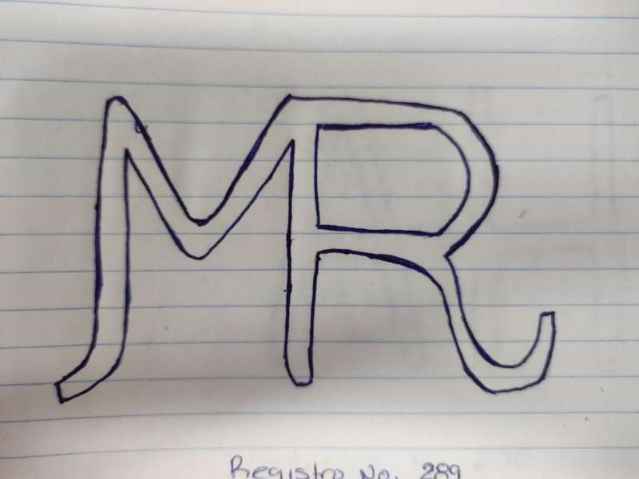 MR
Registro No. 289